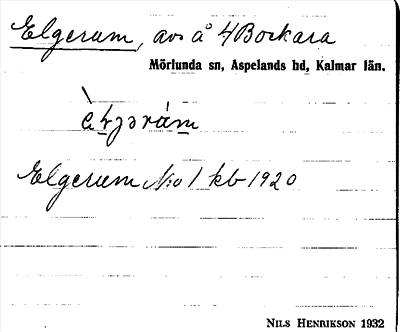 Elgerum, avs å 4 Bockara
Mörlunda sn, Aspelands hd, Kalmar län.
Elgerum No 1 kb 1920
NILS HENRIKSON 1932